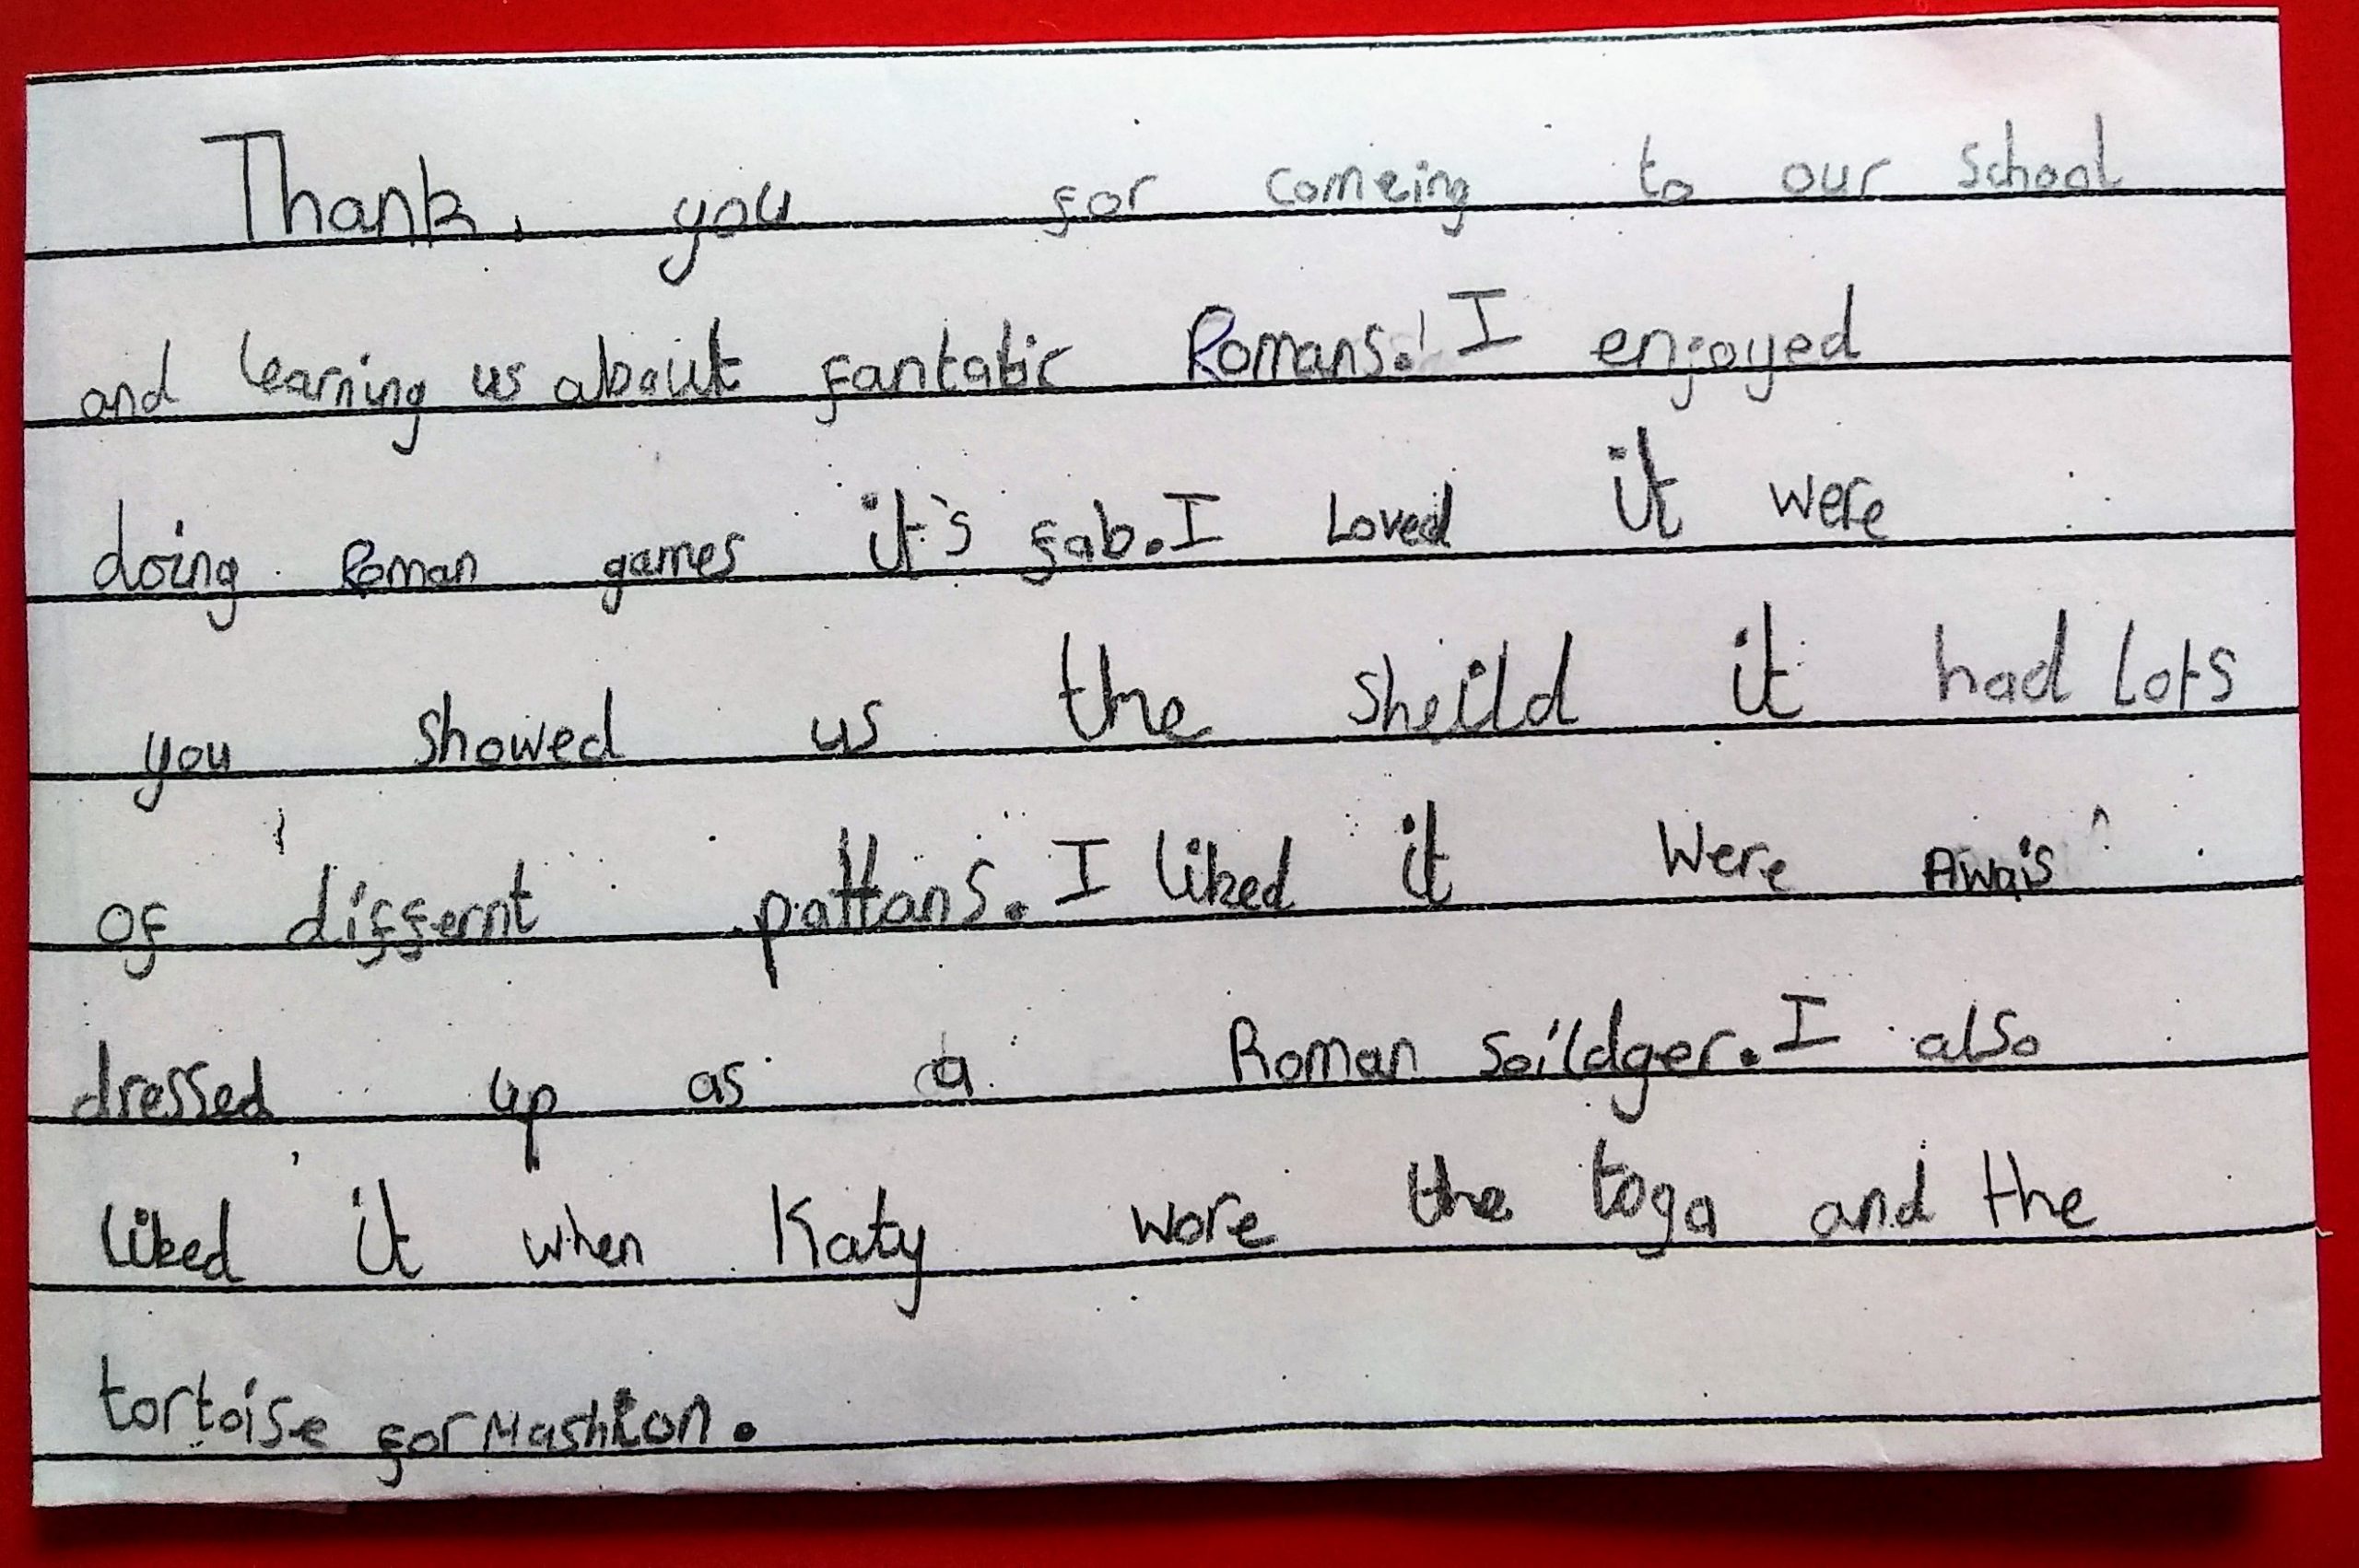 Thank you for comeing to our school
and learning us about fantatic Romans! I enjoyed
doing Roman games it's fab. I Loved it were
you showed us the sheild it had lots
of differnt pattans. I liked it were Awais
dressed up as a Roman soildger. I also
liked it when Katy wore the toga and the
tortoise formashion.